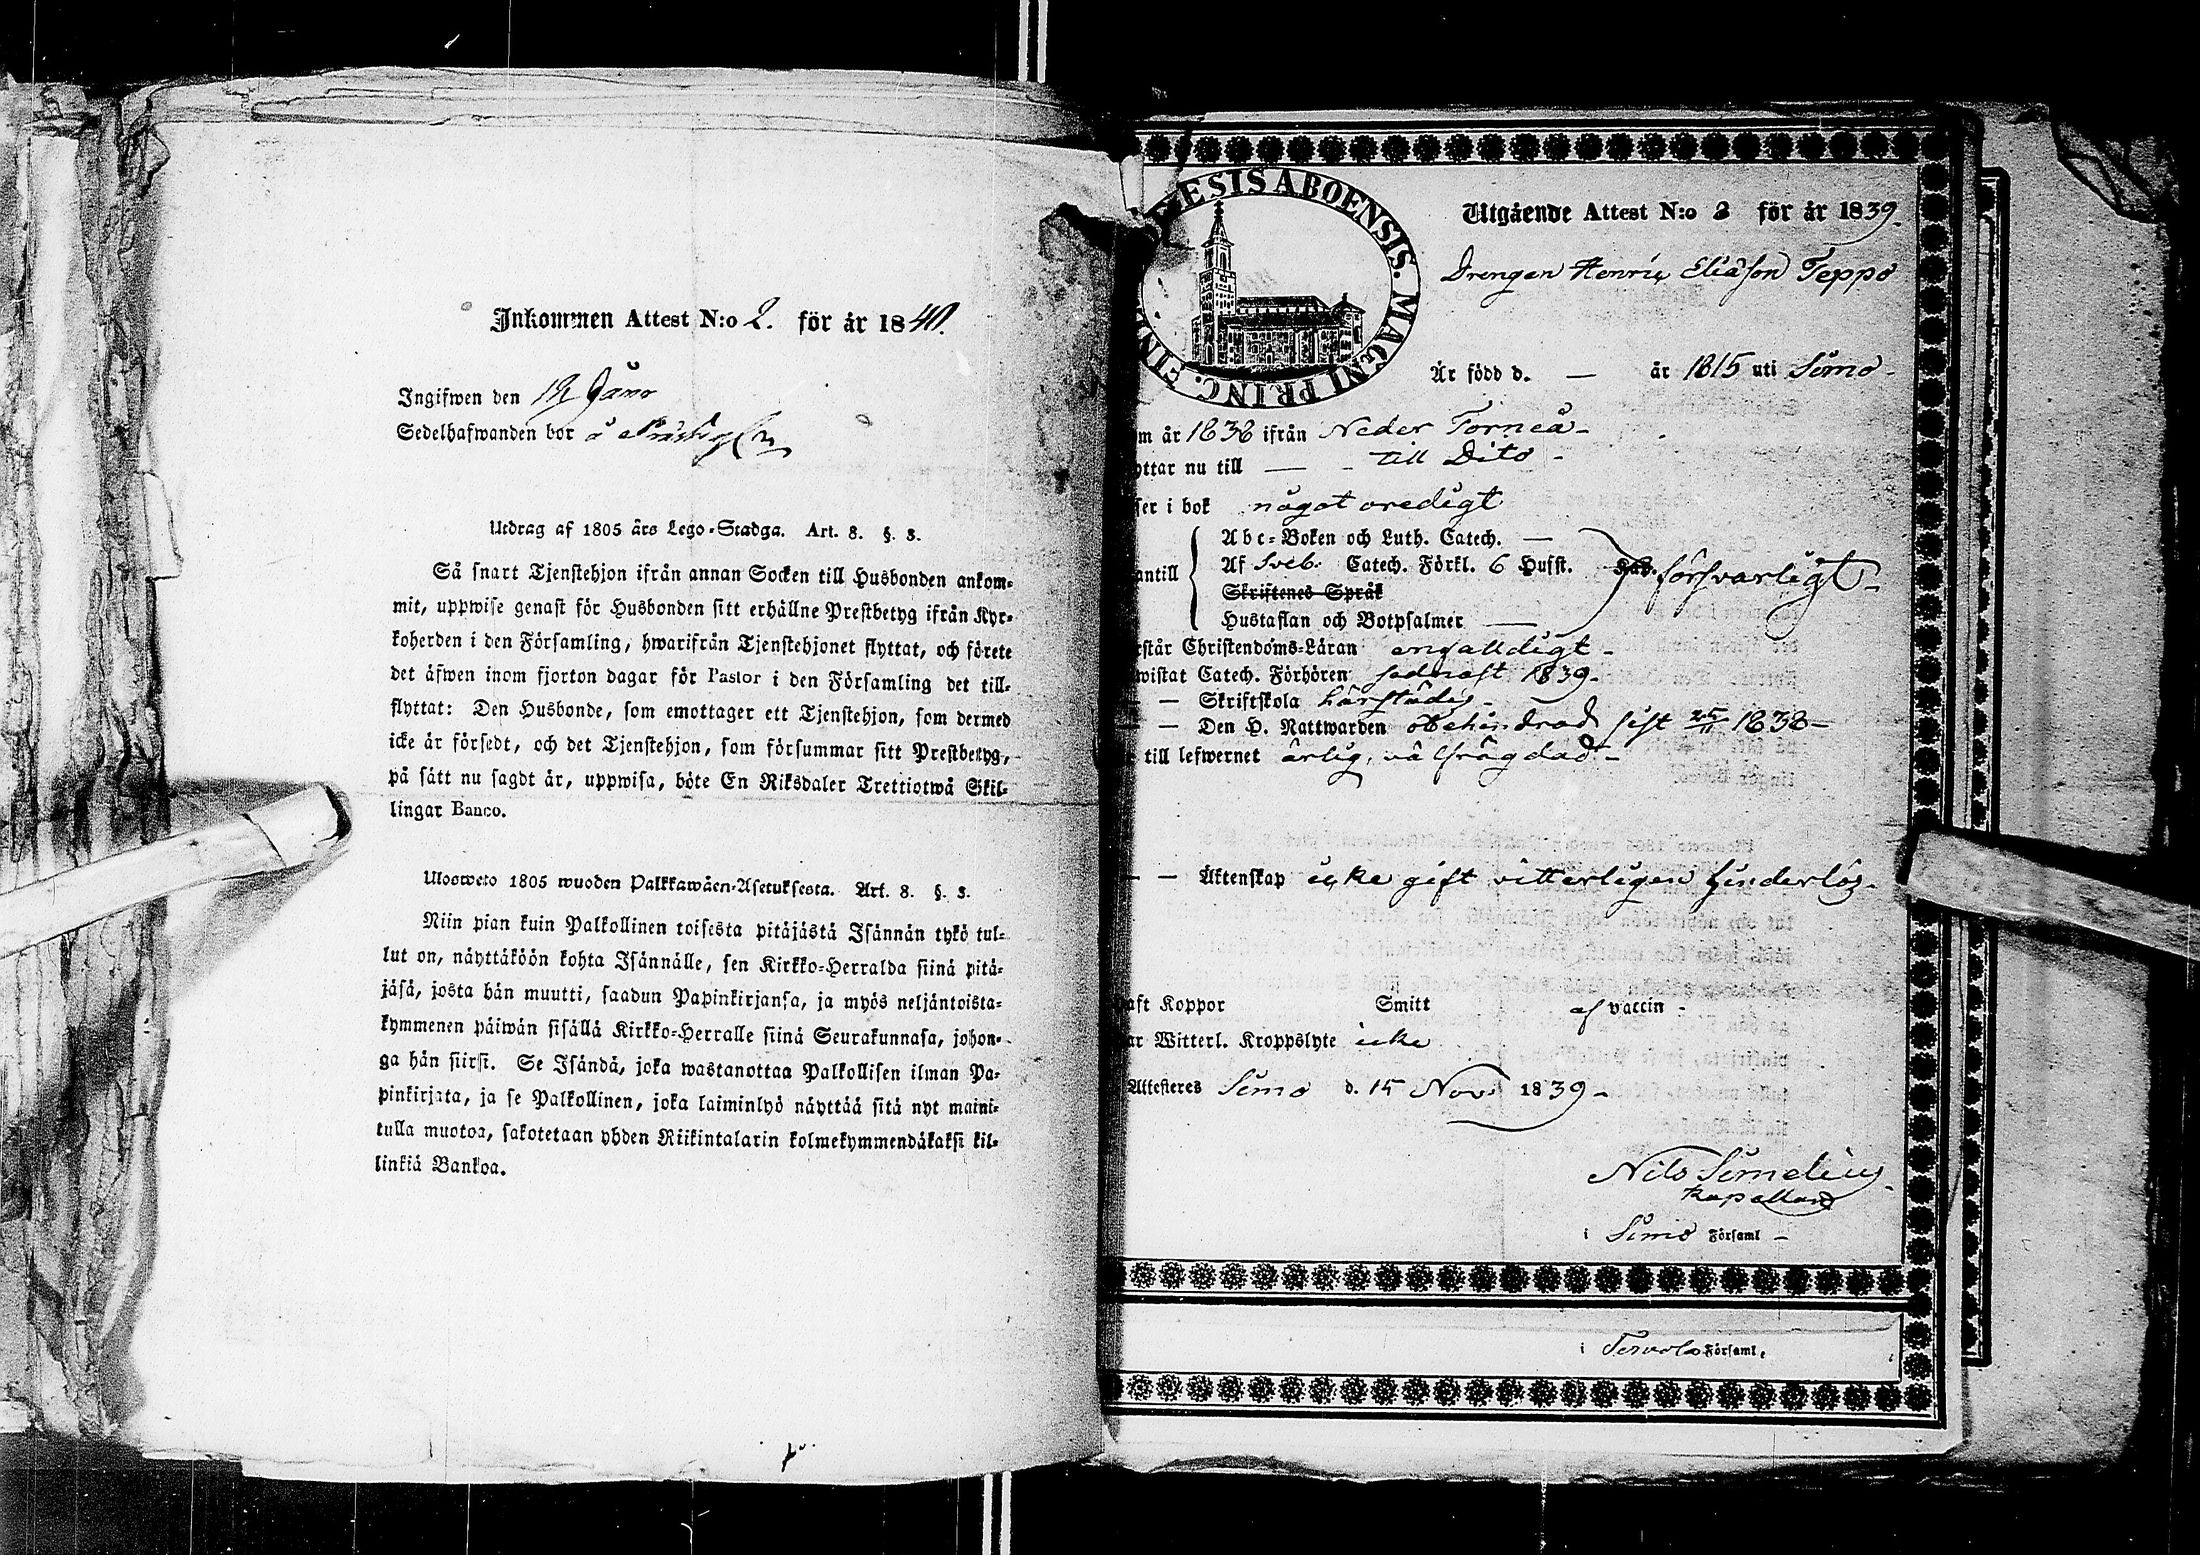 Inkommen Attest N:o 2. för år 1840.
Ingifwen den 12 Janu
Sedelhafwanden bor å
Utdrag af 1805 års Lego-Stadga. Art. 8. §. 3.
Så snart Tjenstehjon ifrån annan Socken till Husbonden ankom-
mit, uppwise genast för Husbonden sitt erhållne Prestbetyg ifrån Kyr-
koherden i den Församling, hwarifrån Tjenstehjonet flyttat, och förete
det äfwen inom fjorton dagar för Pastor i den Församling det till-
flyttat: Den Husbonde, som emottager ett Tjenstehjon, som dermed
icke är försedt, och det Tjenstehjon, som försummar sitt Prestbetyg,
på sätt nu sagdt är, uppwisa, böte En Riksdaler Trettiotwå Skil-
lingar Banco.
Ulosweto 1805 wuoden Palkkawäen-Asetuksesta. Art. 8. §. 3.
Niin pian kuin Palkollinen toisesta pitäjästä Isännän tykö tul-
lut on, näyttäköön kohta Isännälle, sen Kirkko-Herralda siinä pitä-
jäsä, josta hän muutti, saadun Papinkirjansa, ja myös neljäntoista-
kymmenen päiwän sisällä Kirkko-Herralle siinä Seurakunnasa, johon-
ga hän siirsi. Se Isändä, joka wastanottaa Palkollisen ilman Pa-
pinkirjata, ja se Palkollinen, joka laiminlyö näyttää sitä nyt maini-
tulla muotoa, sakotetaan yhden Riikintalarin kolmekymmendäkaksi kil-
linkiä Bankoa.
ESIS ABOENSIS. MAGNI PRINC. FIN
Utgående Attest N:o 2 för år 1839.
Drengen Henric Eliasson Teppo
Är född d. — år 1815 uti Simo -
om år 1838 ifrån Neder Torneå -
yttar nu till — - till Dito -
ser i bok något oredigt
antill
Abc-Boken och Luth. Catech. —
Af Sveb. Catech. Förkl. 6 Hufst. försvarligt -
Skriftenes Språk
Hustaflan och Botpsalmer —
rstår Christendoms-Läran enfalldigt -
wistat Catech. Förhören sednast 1839 -
— — Skriftskola härstädes -
— — Den H. Nattwarden obehindrad sist 25/11 1838 -
till lefwernet ärlig, välfrägdad -
— — Äktenskap icke gift vitterligen hinderlös -
haft Koppor Smitt af vaccin -
ar Witterl. Kroppslyte icke
Attesteres Simo d. 15 Nov. 1839 -
Nils Simelius
Kapellan
i Simo Församl -
i Tervola Församl.